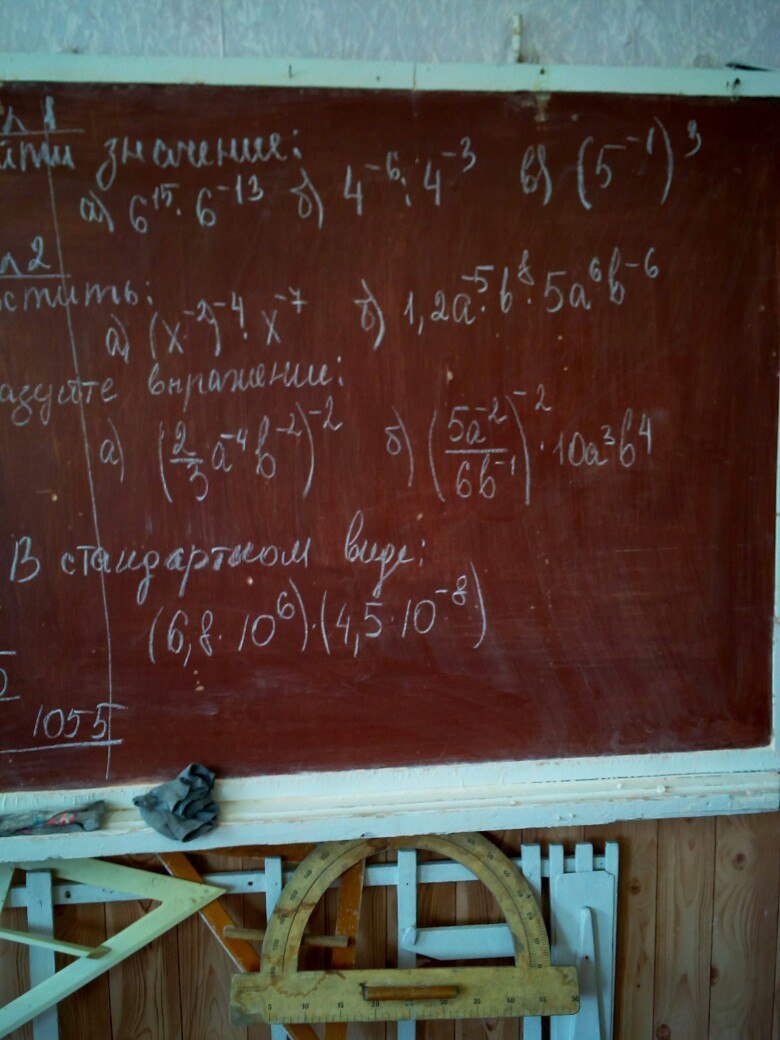 л 1
йти значения:
а) 6¹⁵ · 6⁻¹³ б) 4⁻⁶ : 4⁻³ в) (5⁻¹)³
л 2
стить:
а) (x⁻²)⁻⁴ · x⁻⁷ б) 1,2a⁻⁵ · b⁸ · 5a⁶b⁻⁶
азуйте выражении:
а) (2/3 a⁻⁴b⁻²)⁻² б) (5a⁻²/6b⁻¹)⁻² · 10a³b⁴
В стандартном виде:
(6,8 · 10⁶) · (4,5 · 10⁻⁸)
1055